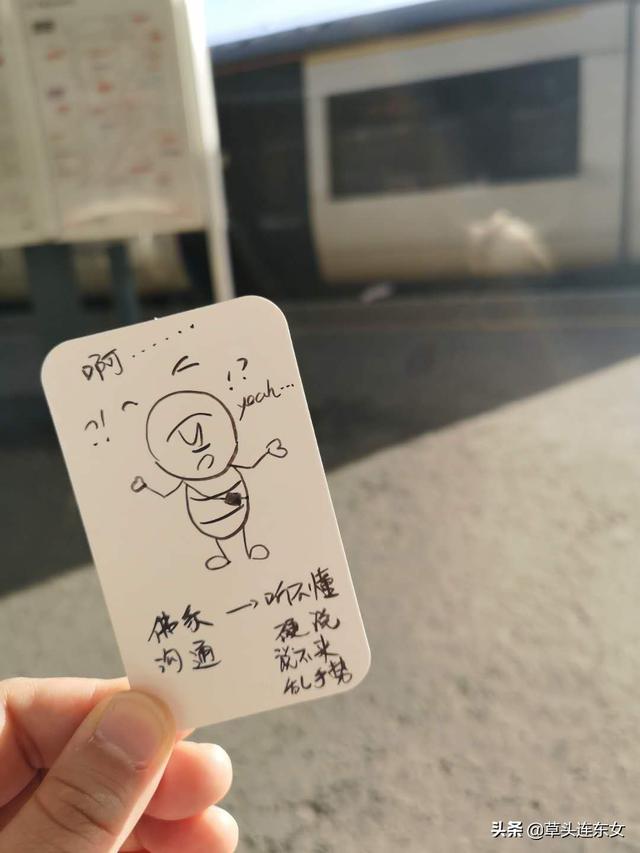 啊······
?!
!?
yeah...
佛系 → 听不懂
沟通 硬说
说不来
乱手势
头条 @草头连东女